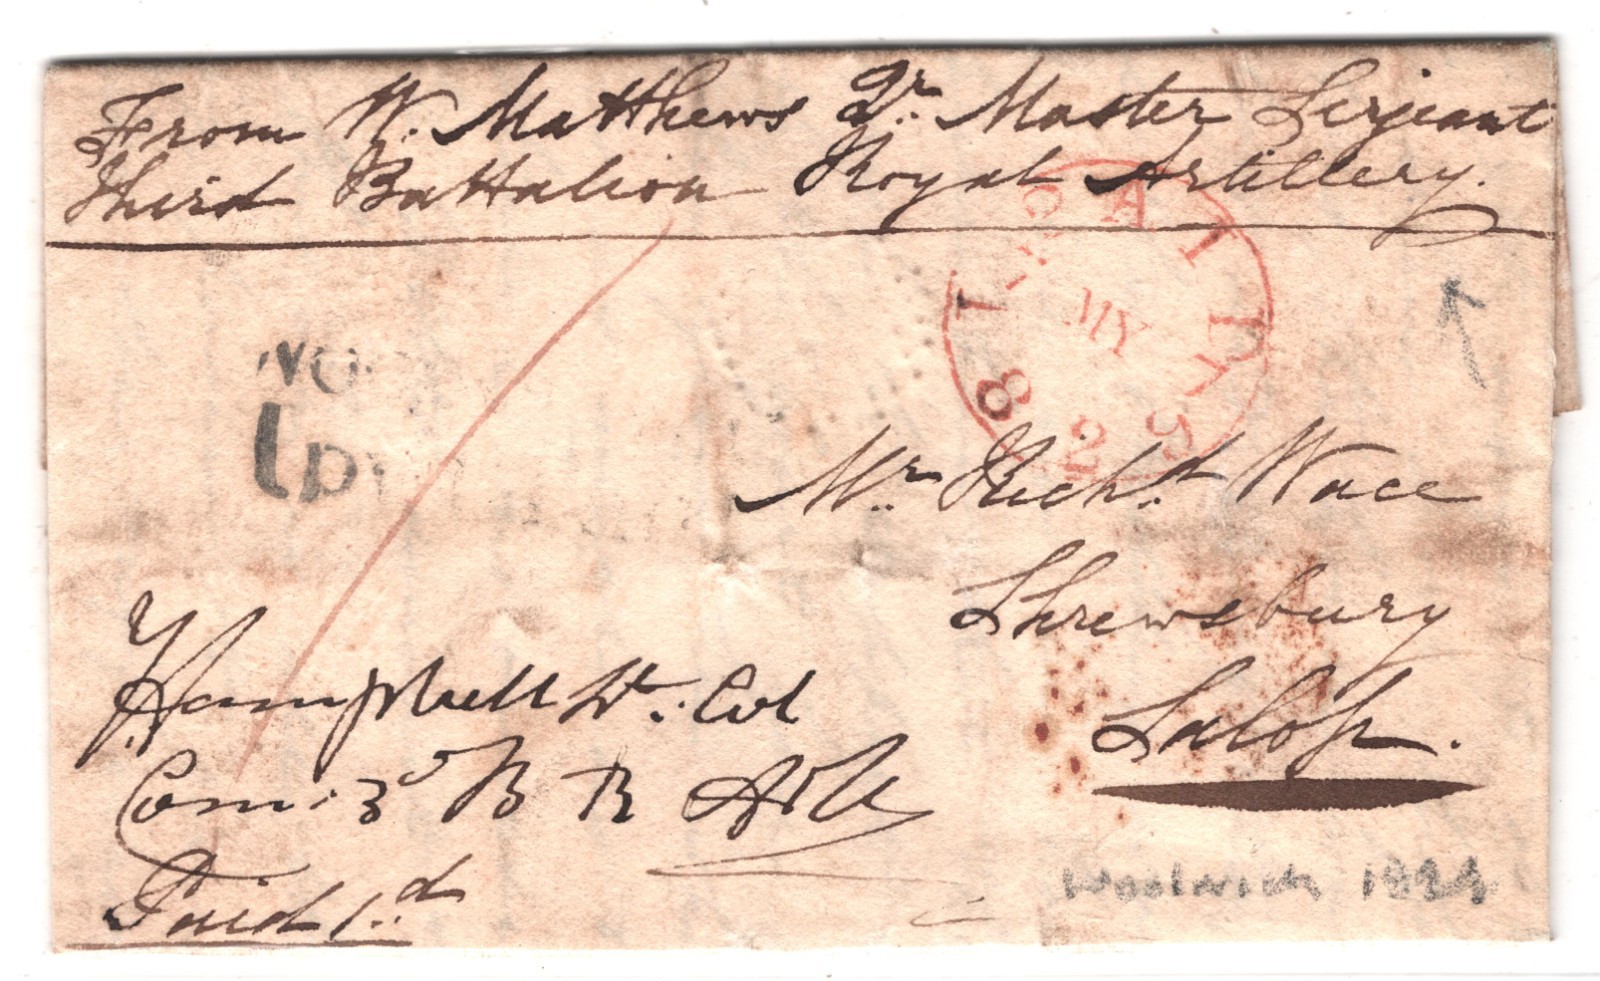 From W. Matthews Qr. Master Serjeant
Third Battalion Royal Artillery.
PAID
MY
2
Wo
1py
Mr. Richd. Wace
Shrewsbury
Salop.
Campbell Lt. Col
Com: 3d B R Art
Paid 1.d
Woolwich